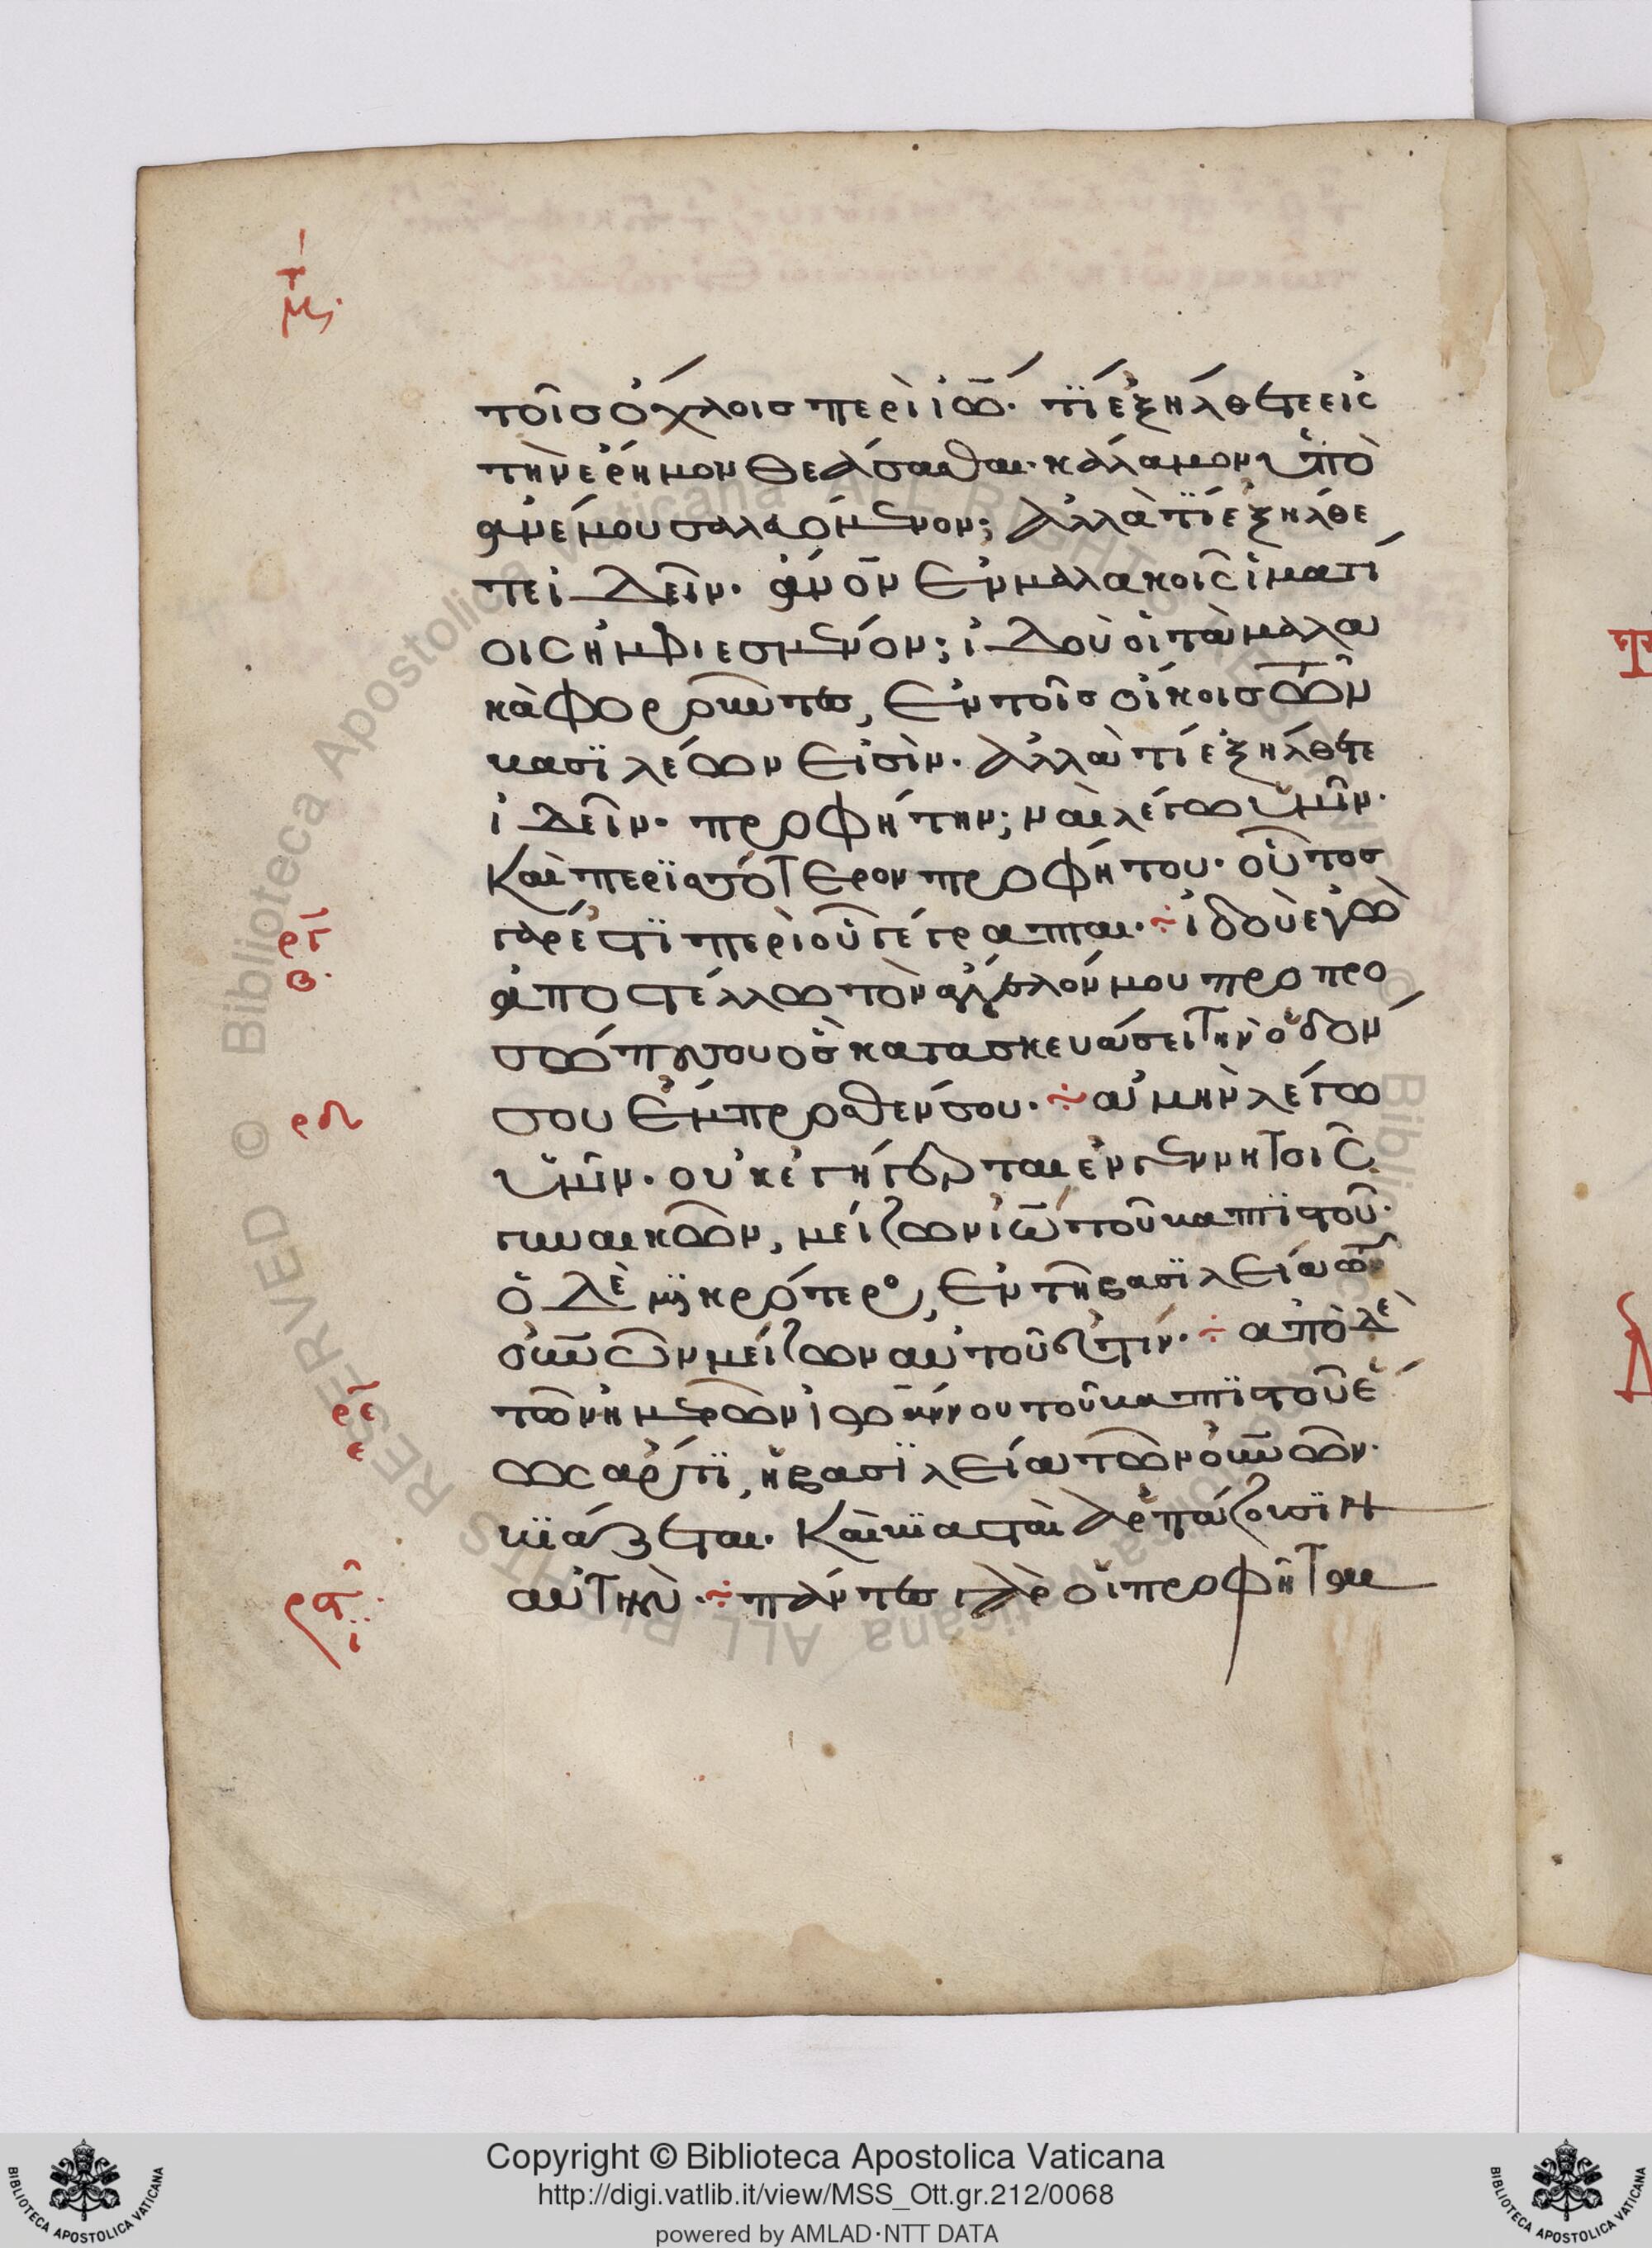 τοῖς ὄχλοις περὶ ἰω. τί ἐξήλθετε εἰς
τὴν ἔρημον θεάσασθαι. κάλαμον ὑπὸ
ἀνέμου σαλευόμενον; ἀλλὰ τί ἐξήλθε
τε ἰδεῖν. ἄνον ἐν μαλακοῖς ἱματί
οις ἠμφιεσμένον; ἰδοὺ οἱ τὰ μαλα
κὰ φοροῦντες, ἐν τοῖς οἴκοις τῶν
βασιλέων εἰσὶν. ἀλλὰ τί ἐξήλθετε
ἰδεῖν. προφήτην; ναὶ λέγω ὑμῖν.
καὶ περισσότερον προφήτου. οὗτος
γάρ ἐστι περὶ οὗ γέγραπται. ÷ ἰδοὺ ἐγὼ
ἀποστέλλω τὸν ἄγγελόν μου πρὸ προ
σώπου σου ὃς κατασκευάσει τὴν ὁδόν
σου ἔμπροσθέν σου. ÷ ἀμὴν λέγω
ὑμῖν. οὐκ ἐγήγερται ἐν γεννητοῖς
γυναικῶν, μείζων ἰω τοῦ βαπτιστοῦ.
ὁ δὲ μικρότερος, ἐν τῇ βασιλείᾳ τῶν
οὐνῶν μείζων αὐτοῦ ἐστιν. ÷ ἀπὸ δὲ
τῶν ἡμερῶν ἰωάννου τοῦ βαπτιστοῦ ἕ
ως ἄρτι, ἡ βασιλεία τῶν οὐνῶν.
βιάζεται. καὶ βιασταὶ ἁρπάζουσιν
αὐτήν. ÷ πάντες γὰρ οἱ προφῆται
ργ
β
ρδ
ρε
ε
Copyright © Biblioteca Apostolica Vaticana
http://digi.vatlib.it/view/MSS_Ott.gr.212/0068
powered by AMLAD·NTT DATA
BIBLIOTECA APOSTOLICA VATICANA
BIBLIOTECA APOSTOLICA VATICANA